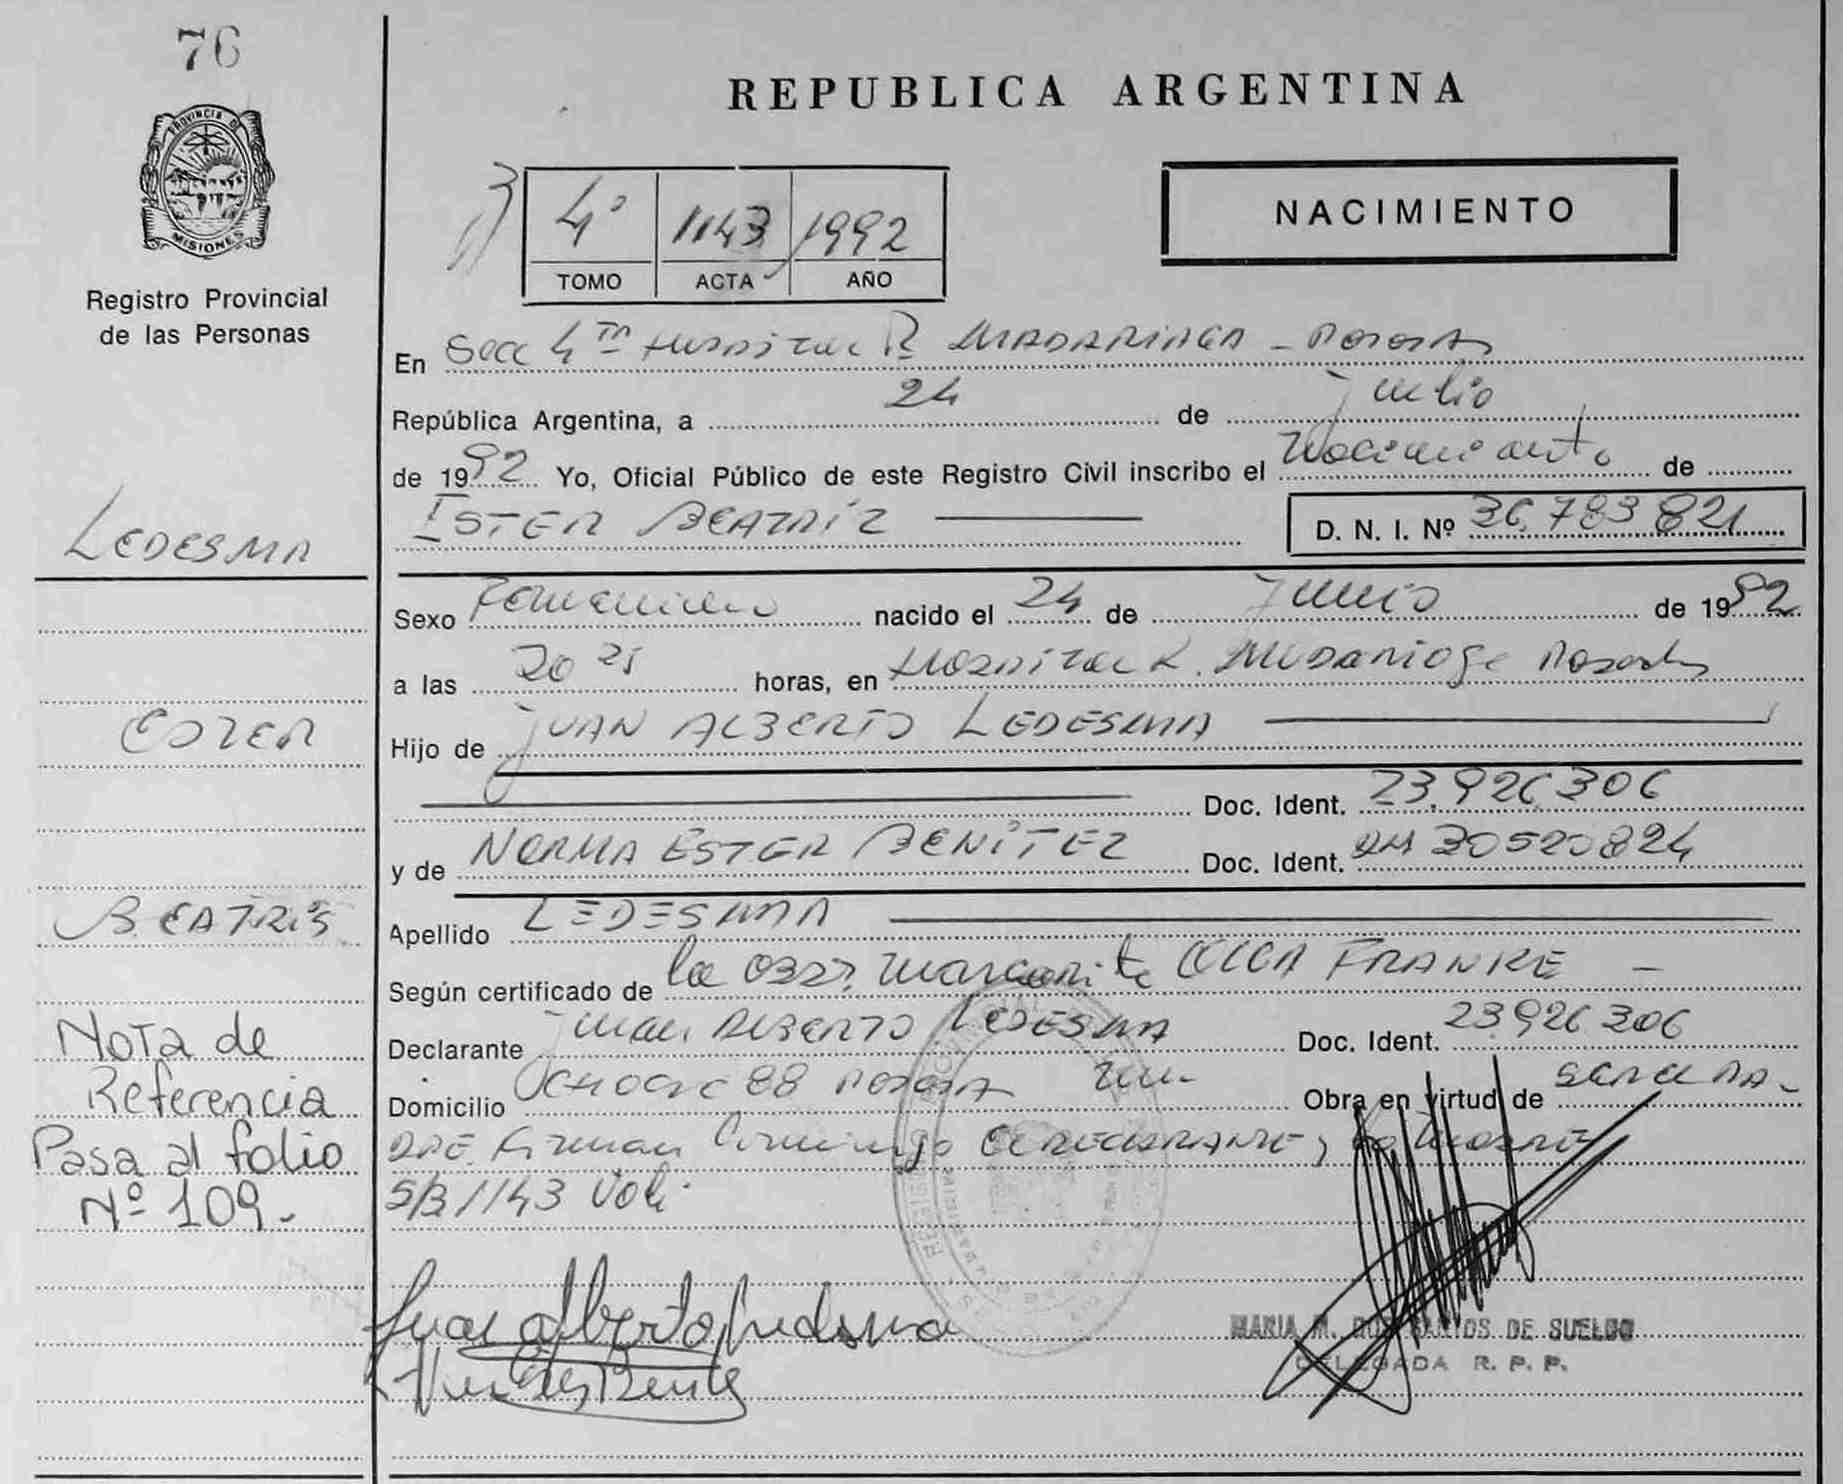 76
REPUBLICA ARGENTINA
PROVINCIA DE
MISIONES
Registro Provincial
de las Personas
4º 1143 1992
TOMO ACTA AÑO
NACIMIENTO
En Secc 4ta Hospital R MADARIAGA - Posadas
República Argentina, a 24 de julio
de 1992 Yo, Oficial Público de este Registro Civil inscribo el Nacimiento de
ESTER BEATRIZ D. N. I. Nº 36.783 821
LEDESMA
Sexo Femenino nacido el 24 de Junio de 1992
a las 20 25 horas, en Hospital R. Madariaga Posadas
Hijo de JUAN ALBERTO LEDESMA
ESTER
Doc. Ident. 23.926 306
y de NORMA ESTER BENÍTEZ Doc. Ident. 30520824
BEATRIS
Apellido LEDESMA
Según certificado de la Margarita OLGA FRANKE -
Declarante Juan ALBERTO LEDESMA Doc. Ident. 23926 306
Domicilio 88 Posadas Obra en virtud de
Firman Conmigo
1143
Nota de
Referencia
Pasa al folio
Nº 109.-
Juan Alberto Ledesma
MARIA M. DOS SANTOS DE SUELDO
DELEGADA R. P. P.